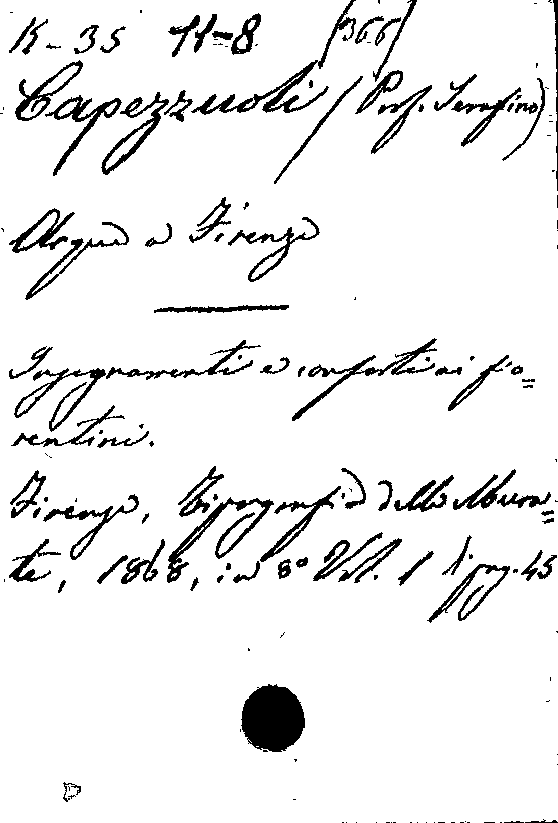 K-35 11-8 (366)
Capezzuoli (Prof. Serafino)
Acque a Firenze
Insegnamenti e conforti ai fio=
rentini.
Firenze, Tipografia delle Mura=
te, 1868, in 8° Vol. 1 di pag. 45